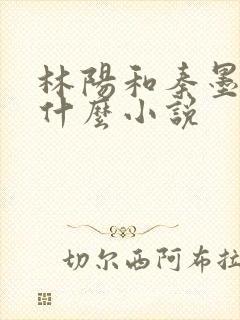 林陽和秦墨
什麼小說
切尔西阿布拉